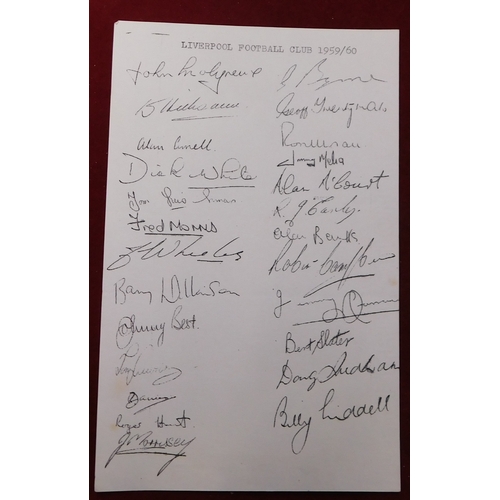 LIVERPOOL FOOTBALL CLUB 1959/60
John Molyneux
Alan
Dick White
Fred Morris
J Wheeler
Barry Wilkinson
Johnny Best.
Roger Hunt
J Morrissey
G Byrne
Geoff Twentyman
Ronnie Moran
Jimmy Melia
Alan A'Court
Alan Banks
Robin Campbell
Bert Slater
Doug Rudham
Billy Liddell